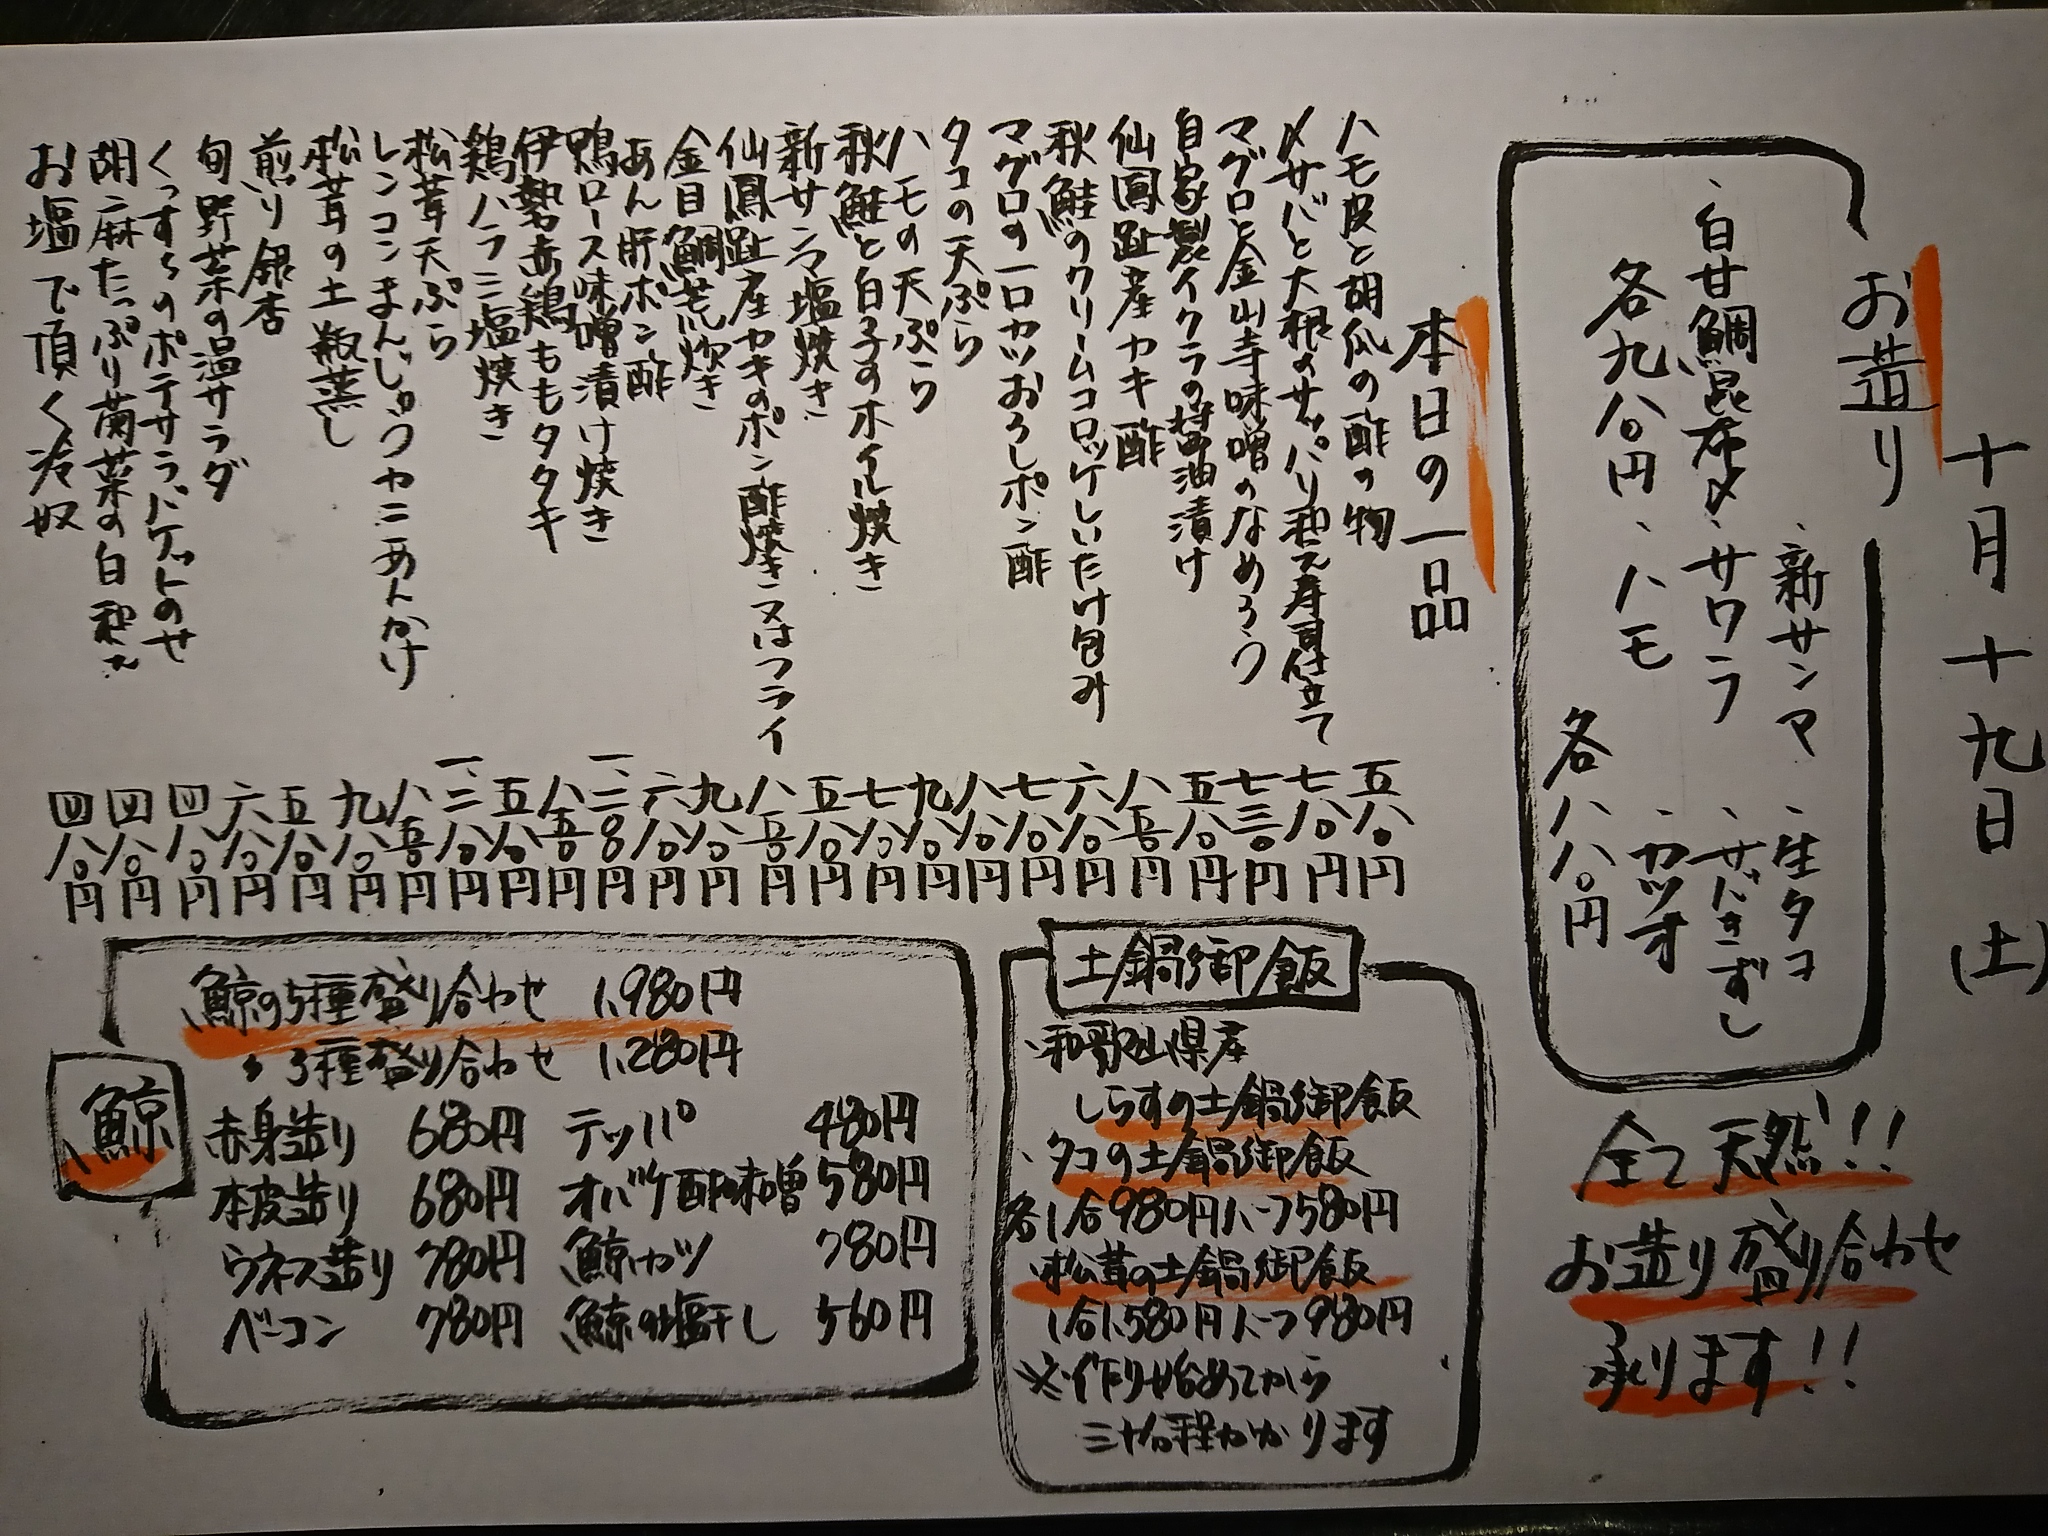 十月十九日(土)
お造り
、新サンマ
、生タコ
、白甘鯛昆布〆
、サワラ
、サバきずし
各九八〇円
、ハモ
、カツオ
各八八〇円
全て天然!!
お造り盛り合わせ
承ります!!
本日の一品
ハモ皮と胡瓜の酢の物 五八〇円
〆サバと大根のサッパリ和え寿司仕立て 七八〇円
マグロと金山寺味噌のなめろう 七三〇円
自家製イクラの醤油漬け 五八〇円
仙鳳趾産カキ酢 八五〇円
秋鮭のクリームコロッケしいたけ包み 六八〇円
マグロの一口カツおろしポン酢 七八〇円
タコの天ぷら 八八〇円
ハモの天ぷら 九八〇円
秋鮭と白子のホイル焼き 七八〇円
新サンマ塩焼き 五八〇円
仙鳳趾産カキのポン酢焼き又はフライ 八五〇円
金目鯛荒炊き 九八〇円
あん肝ポン酢 六八〇円
鴨ロース味噌漬け焼き 一、二八〇円
伊勢赤鶏ももタタキ 八五〇円
鶏ハラミ塩焼き 五八〇円
松茸天ぷら 一、二八〇円
レンコンまんじゅうカニあんかけ 八五〇円
松茸の土瓶蒸し 九八〇円
煎り銀杏 五八〇円
旬野菜の温サラダ 六八〇円
くっすりのポテサラバケットのせ 四八〇円
胡麻たっぷり菊菜の白和え 四八〇円
お塩で頂く冷奴 四八〇円
土鍋御飯
、和歌山県産
しらすの土鍋御飯
、タコの土鍋御飯
各1合980円ハーフ580円
、松茸の土鍋御飯
1合1,580円ハーフ980円
※作り始めてから
三十分程かかります
鯨
鯨の5種盛り合わせ 1,980円
〃 3種盛り合わせ 1,280円
赤身造り 680円 テッパ 480円
本皮造り 680円 オバケ酢味噌 580円
ウネス造り 780円 鯨カツ 780円
ベーコン 780円 鯨の塩干し 560円